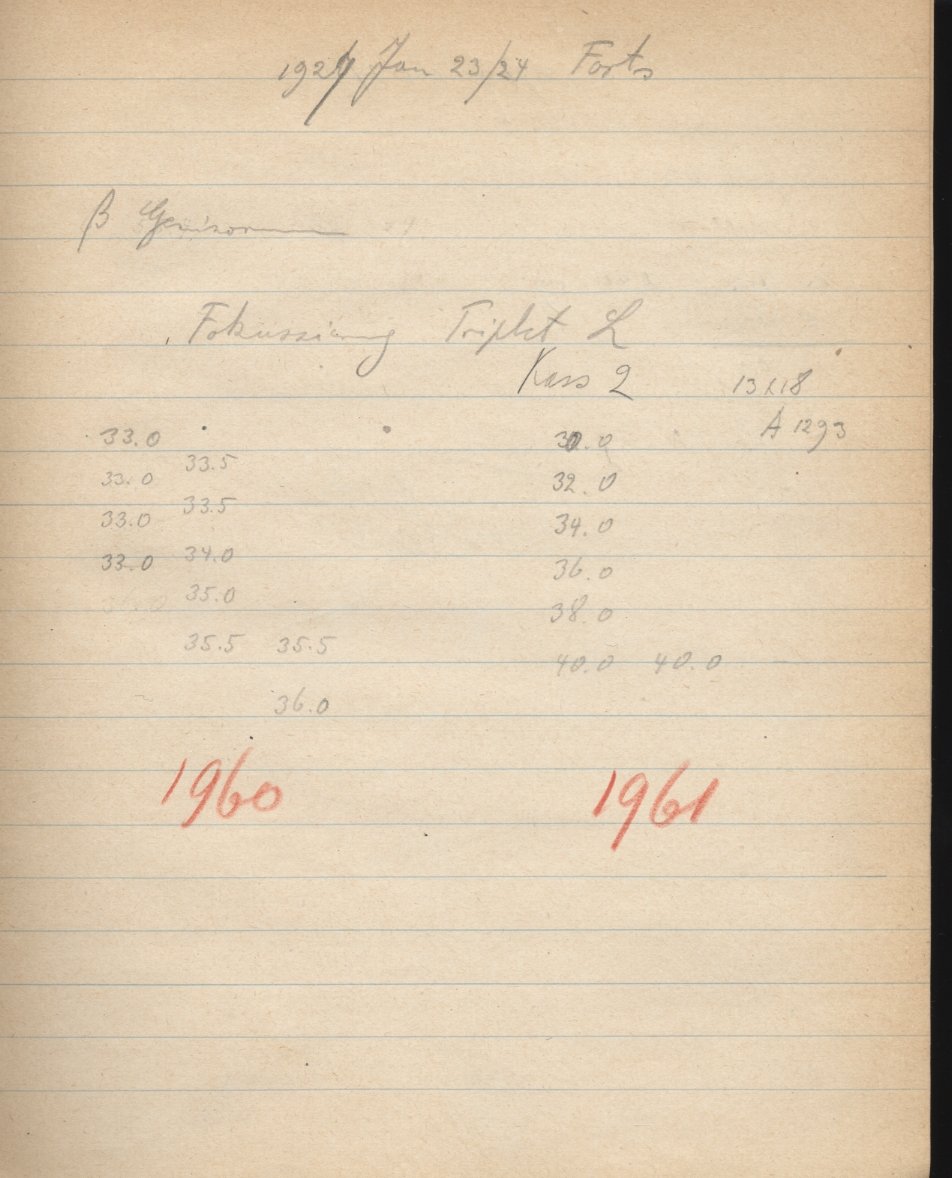 Jan 23/24 Forts
β Geminorum
Fokussierung Triplet L
Kass 2 13x18
A 1293
33.0 30.0
33.5
33.0 32.0
33.5
33.0 34.0
34.0
33.0 36.0
35.0
36.0 38.0
35.5 35.5
40.0 40.0
36.0
1960 1961